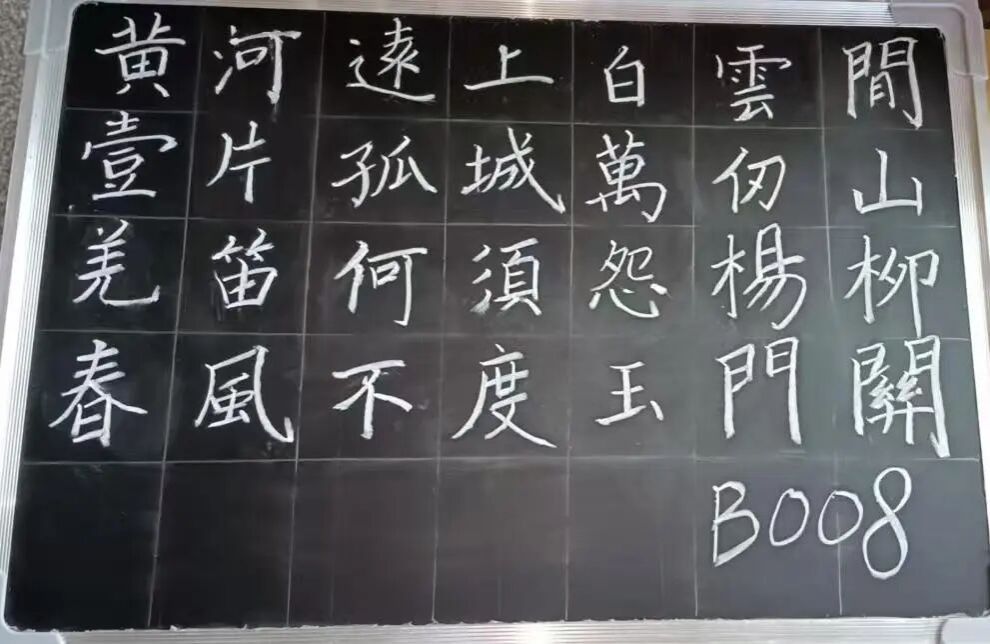 黄河遠上白雲間
壹片孤城萬仞山
羌笛何須怨楊柳
春風不度玉門關
B008